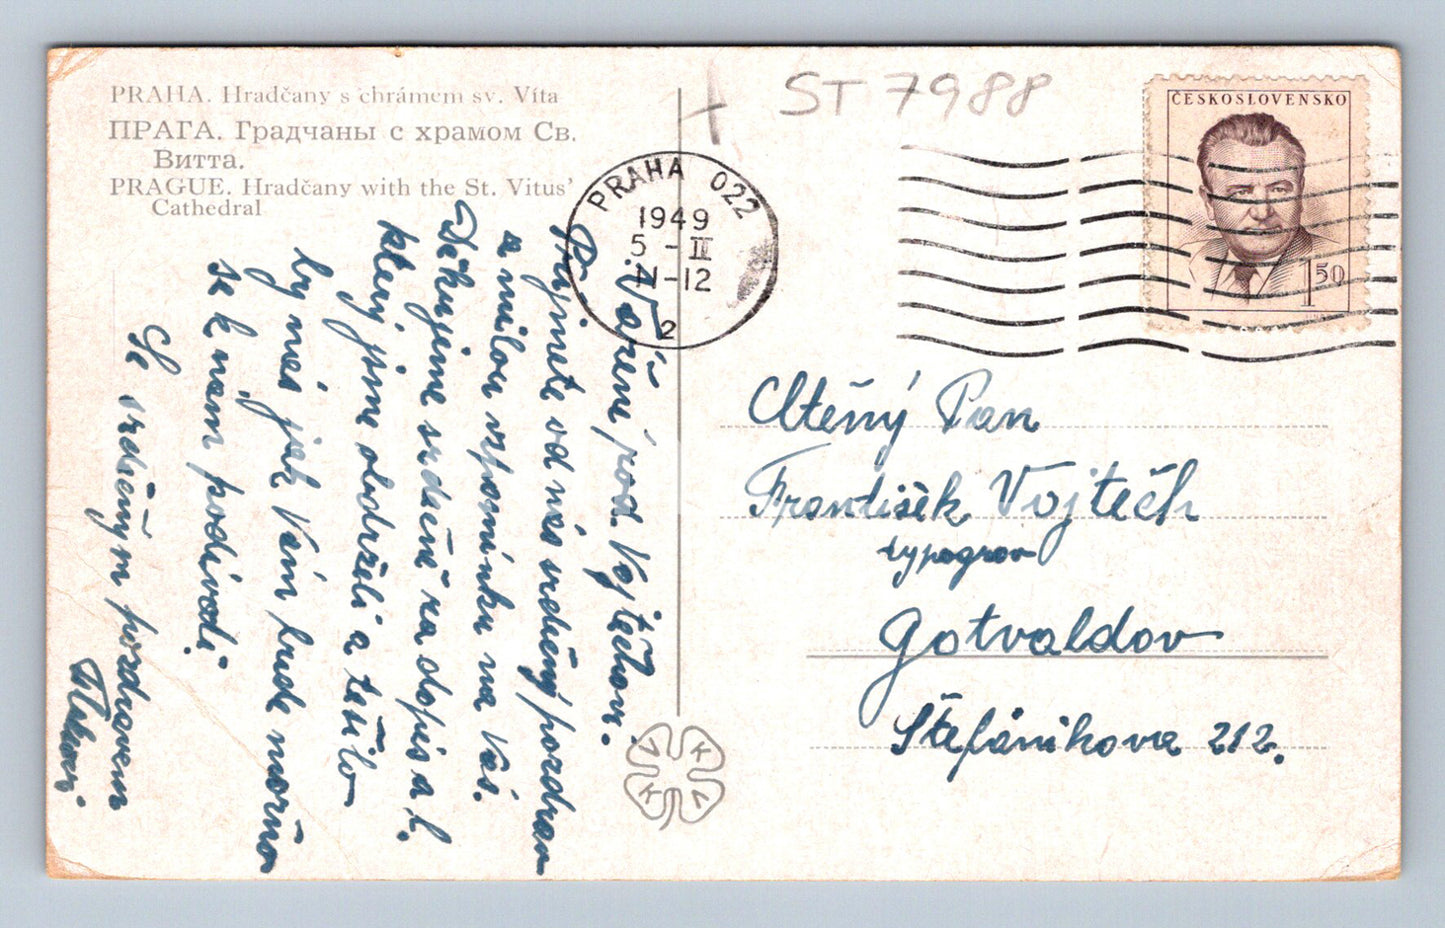 PRAHA. Hradčany s chrámem sv. Víta
ПРАГА. Градчаны с храмом Св.
Витта.
PRAGUE. Hradčany with the St. Vitus'
Cathedral
ST 7988
PRAHA 022
1949
5 - III
11-12
2
ČESKOSLOVENSKO
1 50
Vážení, rod. Vojtěchov.
Přijměte od nás srdečný pozdrav
a milou vzpomínku na Vás.
Děkujeme srdečně za dopis a l.
který jsme obdrželi a těšilo
by nás jak Vám bude možno
se k nám podívati.
Se srdečným pozdravem
Ctěný Pan
František Vojtěch
typograv
Gotvaldov
Štefánikova 212.
V K
K V